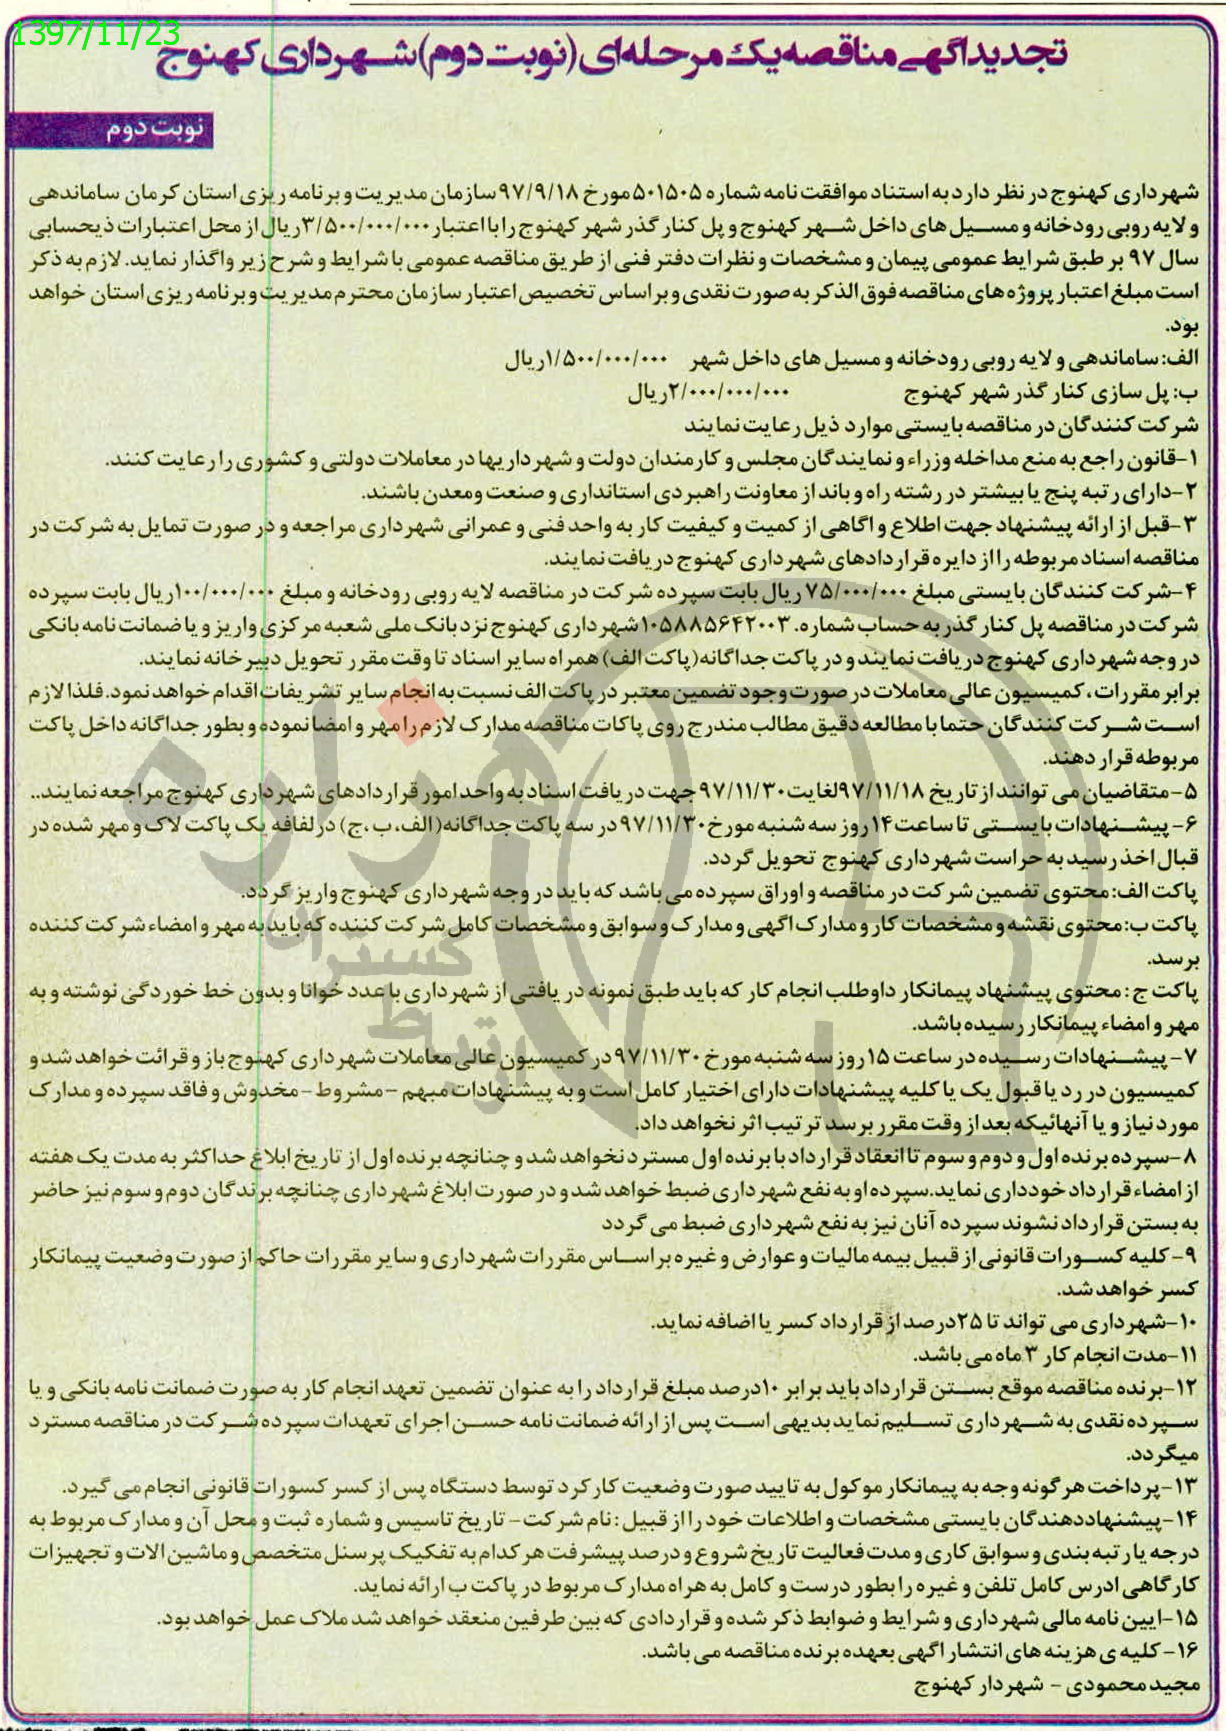 1397/11/23
تجدیدآگهی مناقصه یک مرحله‌ای (نوبت دوم) شهرداری کهنوج
نوبت دوم
شهرداری کهنوج در نظر دارد به استناد موافقت نامه شماره ۵۰۱۵۰۵ مورخ ۹۷/۹/۱۸ سازمان مدیریت و برنامه ریزی استان کرمان ساماندهی
و لایه روبی رودخانه و مسیل های داخل شهر کهنوج و پل کنار گذر شهر کهنوج را با اعتبار ۳/۵۰۰/۰۰۰/۰۰۰ ریال از محل اعتبارات ذیحسابی
سال ۹۷ بر طبق شرایط عمومی پیمان و مشخصات و نظرات دفتر فنی از طریق مناقصه عمومی با شرایط و شرح زیر واگذار نماید. لازم به ذکر
است مبلغ اعتبار پروژه های مناقصه فوق الذکر به صورت نقدی و بر اساس تخصیص اعتبار سازمان محترم مدیریت و برنامه ریزی استان خواهد
بود.
الف: ساماندهی و لایه روبی رودخانه و مسیل های داخل شهر ۱/۵۰۰/۰۰۰/۰۰۰ ریال
ب: پل سازی کنار گذر شهر کهنوج ۲/۰۰۰/۰۰۰/۰۰۰ ریال
شرکت کنندگان در مناقصه بایستی موارد ذیل رعایت نمایند
۱-قانون راجع به منع مداخله وزراء و نمایندگان مجلس و کارمندان دولت و شهرداریها در معاملات دولتی و کشوری را رعایت کنند.
۲-دارای رتبه پنج یا بیشتر در رشته راه و باند از معاونت راهبردی استانداری و صنعت ومعدن باشند.
۳-قبل از ارائه پیشنهاد جهت اطلاع و اگاهی از کمیت و کیفیت کار به واحد فنی و عمرانی شهرداری مراجعه و در صورت تمایل به شرکت در
مناقصه اسناد مربوطه را از دایره قراردادهای شهرداری کهنوج دریافت نمایند.
۴-شرکت کنندگان بایستی مبلغ ۷۵/۰۰۰/۰۰۰ ریال بابت سپرده شرکت در مناقصه لایه روبی رودخانه و مبلغ ۱۰۰/۰۰۰/۰۰۰ ریال بابت سپرده
شرکت در مناقصه پل کنار گذر به حساب شماره. ۱۰۵۸۸۵۶۴۲۰۰۳ شهرداری کهنوج نزد بانک ملی شعبه مرکزی واریز و یا ضمانت نامه بانکی
در وجه شهرداری کهنوج دریافت نمایند و در پاکت جداگانه (پاکت الف) همراه سایر اسناد تا وقت مقرر تحویل دبیرخانه نمایند.
برابر مقررات، کمیسیون عالی معاملات در صورت وجود تضمین معتبر در پاکت الف نسبت به انجام سایر تشریفات اقدام خواهد نمود. فلذا لازم
است شرکت کنندگان حتما با مطالعه دقیق مطالب مندرج روی پاکات مناقصه مدارک لازم را مهر و امضا نموده و بطور جداگانه داخل پاکت
مربوطه قرار دهند.
۵-متقاضیان می توانند از تاریخ ۹۷/۱۱/۱۸ لغایت ۹۷/۱۱/۳۰ جهت دریافت اسناد به واحد امور قراردادهای شهرداری کهنوج مراجعه نمایند..
۶-پیشنهادات بایستی تا ساعت ۱۴ روز سه شنبه مورخ ۹۷/۱۱/۳۰ در سه پاکت جداگانه (الف، ب، ج) در لفافه یک پاکت لاک و مهر شده در
قبال اخذ رسید به حراست شهرداری کهنوج تحویل گردد.
پاکت الف: محتوی تضمین شرکت در مناقصه و اوراق سپرده می باشد که باید در وجه شهرداری کهنوج واریز گردد.
پاکت ب: محتوی نقشه و مشخصات کار و مدارک اگهی و مدارک و سوابق و مشخصات کامل شرکت کننده که باید به مهر و امضاء شرکت کننده
برسد.
پاکت ج: محتوی پیشنهاد پیمانکار داوطلب انجام کار که باید طبق نمونه دریافتی از شهرداری با عدد خوانا و بدون خط خوردگی نوشته و به
مهر و امضاء پیمانکار رسیده باشد.
۷-پیشنهادات رسیده در ساعت ۱۵ روز سه شنبه مورخ ۹۷/۱۱/۳۰ در کمیسیون عالی معاملات شهرداری کهنوج باز و قرائت خواهد شد و
کمیسیون در رد یا قبول یک یا کلیه پیشنهادات دارای اختیار کامل است و به پیشنهادات مبهم -مشروط-مخدوش و فاقد سپرده و مدارک
مورد نیاز و یا آنهائیکه بعد از وقت مقرر برسد ترتیب اثر نخواهد داد.
۸-سپرده برنده اول و دوم و سوم تا انعقاد قرارداد با برنده اول مسترد نخواهد شد و چنانچه برنده اول از تاریخ ابلاغ حداکثر به مدت یک هفته
از امضاء قرارداد خودداری نماید. سپرده او به نفع شهرداری ضبط خواهد شد و در صورت ابلاغ شهرداری چنانچه برندگان دوم و سوم نیز حاضر
به بستن قرارداد نشوند سپرده آنان نیز به نفع شهرداری ضبط می گردد
۹-کلیه کسورات قانونی از قبیل بیمه مالیات و عوارض و غیره بر اساس مقررات شهرداری و سایر مقررات حاکم از صورت وضعیت پیمانکار
کسر خواهد شد.
۱۰-شهرداری می تواند تا ۲۵ درصد از قرارداد کسر یا اضافه نماید.
۱۱-مدت انجام کار ۳ ماه می باشد.
۱۲-برنده مناقصه موقع بستن قرارداد باید برابر ۱۰ درصد مبلغ قرارداد را به عنوان تضمین تعهد انجام کار به صورت ضمانت نامه بانکی و یا
سپرده نقدی به شهرداری تسلیم نماید بدیهی است پس از ارائه ضمانت نامه حسن اجرای تعهدات سپرده شرکت در مناقصه مسترد
میگردد.
۱۳-پرداخت هر گونه وجه به پیمانکار موکول به تایید صورت وضعیت کارکرد توسط دستگاه پس از کسر کسورات قانونی انجام می گیرد.
۱۴-پیشنهاددهندگان بایستی مشخصات و اطلاعات خود را از قبیل: نام شرکت- تاریخ تاسیس و شماره ثبت و محل آن و مدارک مربوط به
درجه یا رتبه بندی و سوابق کاری و مدت فعالیت تاریخ شروع و درصد پیشرفت هر کدام به تفکیک پرسنل متخصص و ماشین الات و تجهیزات
کارگاهی ادرس کامل تلفن و غیره را بطور درست و کامل به همراه مدارک مربوط در پاکت ب ارائه نماید.
۱۵-ایین نامه مالی شهرداری و شرایط و ضوابط ذکر شده و قراردادی که بین طرفین منعقد خواهد شد ملاک عمل خواهد بود.
۱۶-کلیه ی هزینه های انتشار اگهی بعهده برنده مناقصه می باشد.
مجید محمودی - شهردار کهنوج
هزاره
گستران
ارتباط